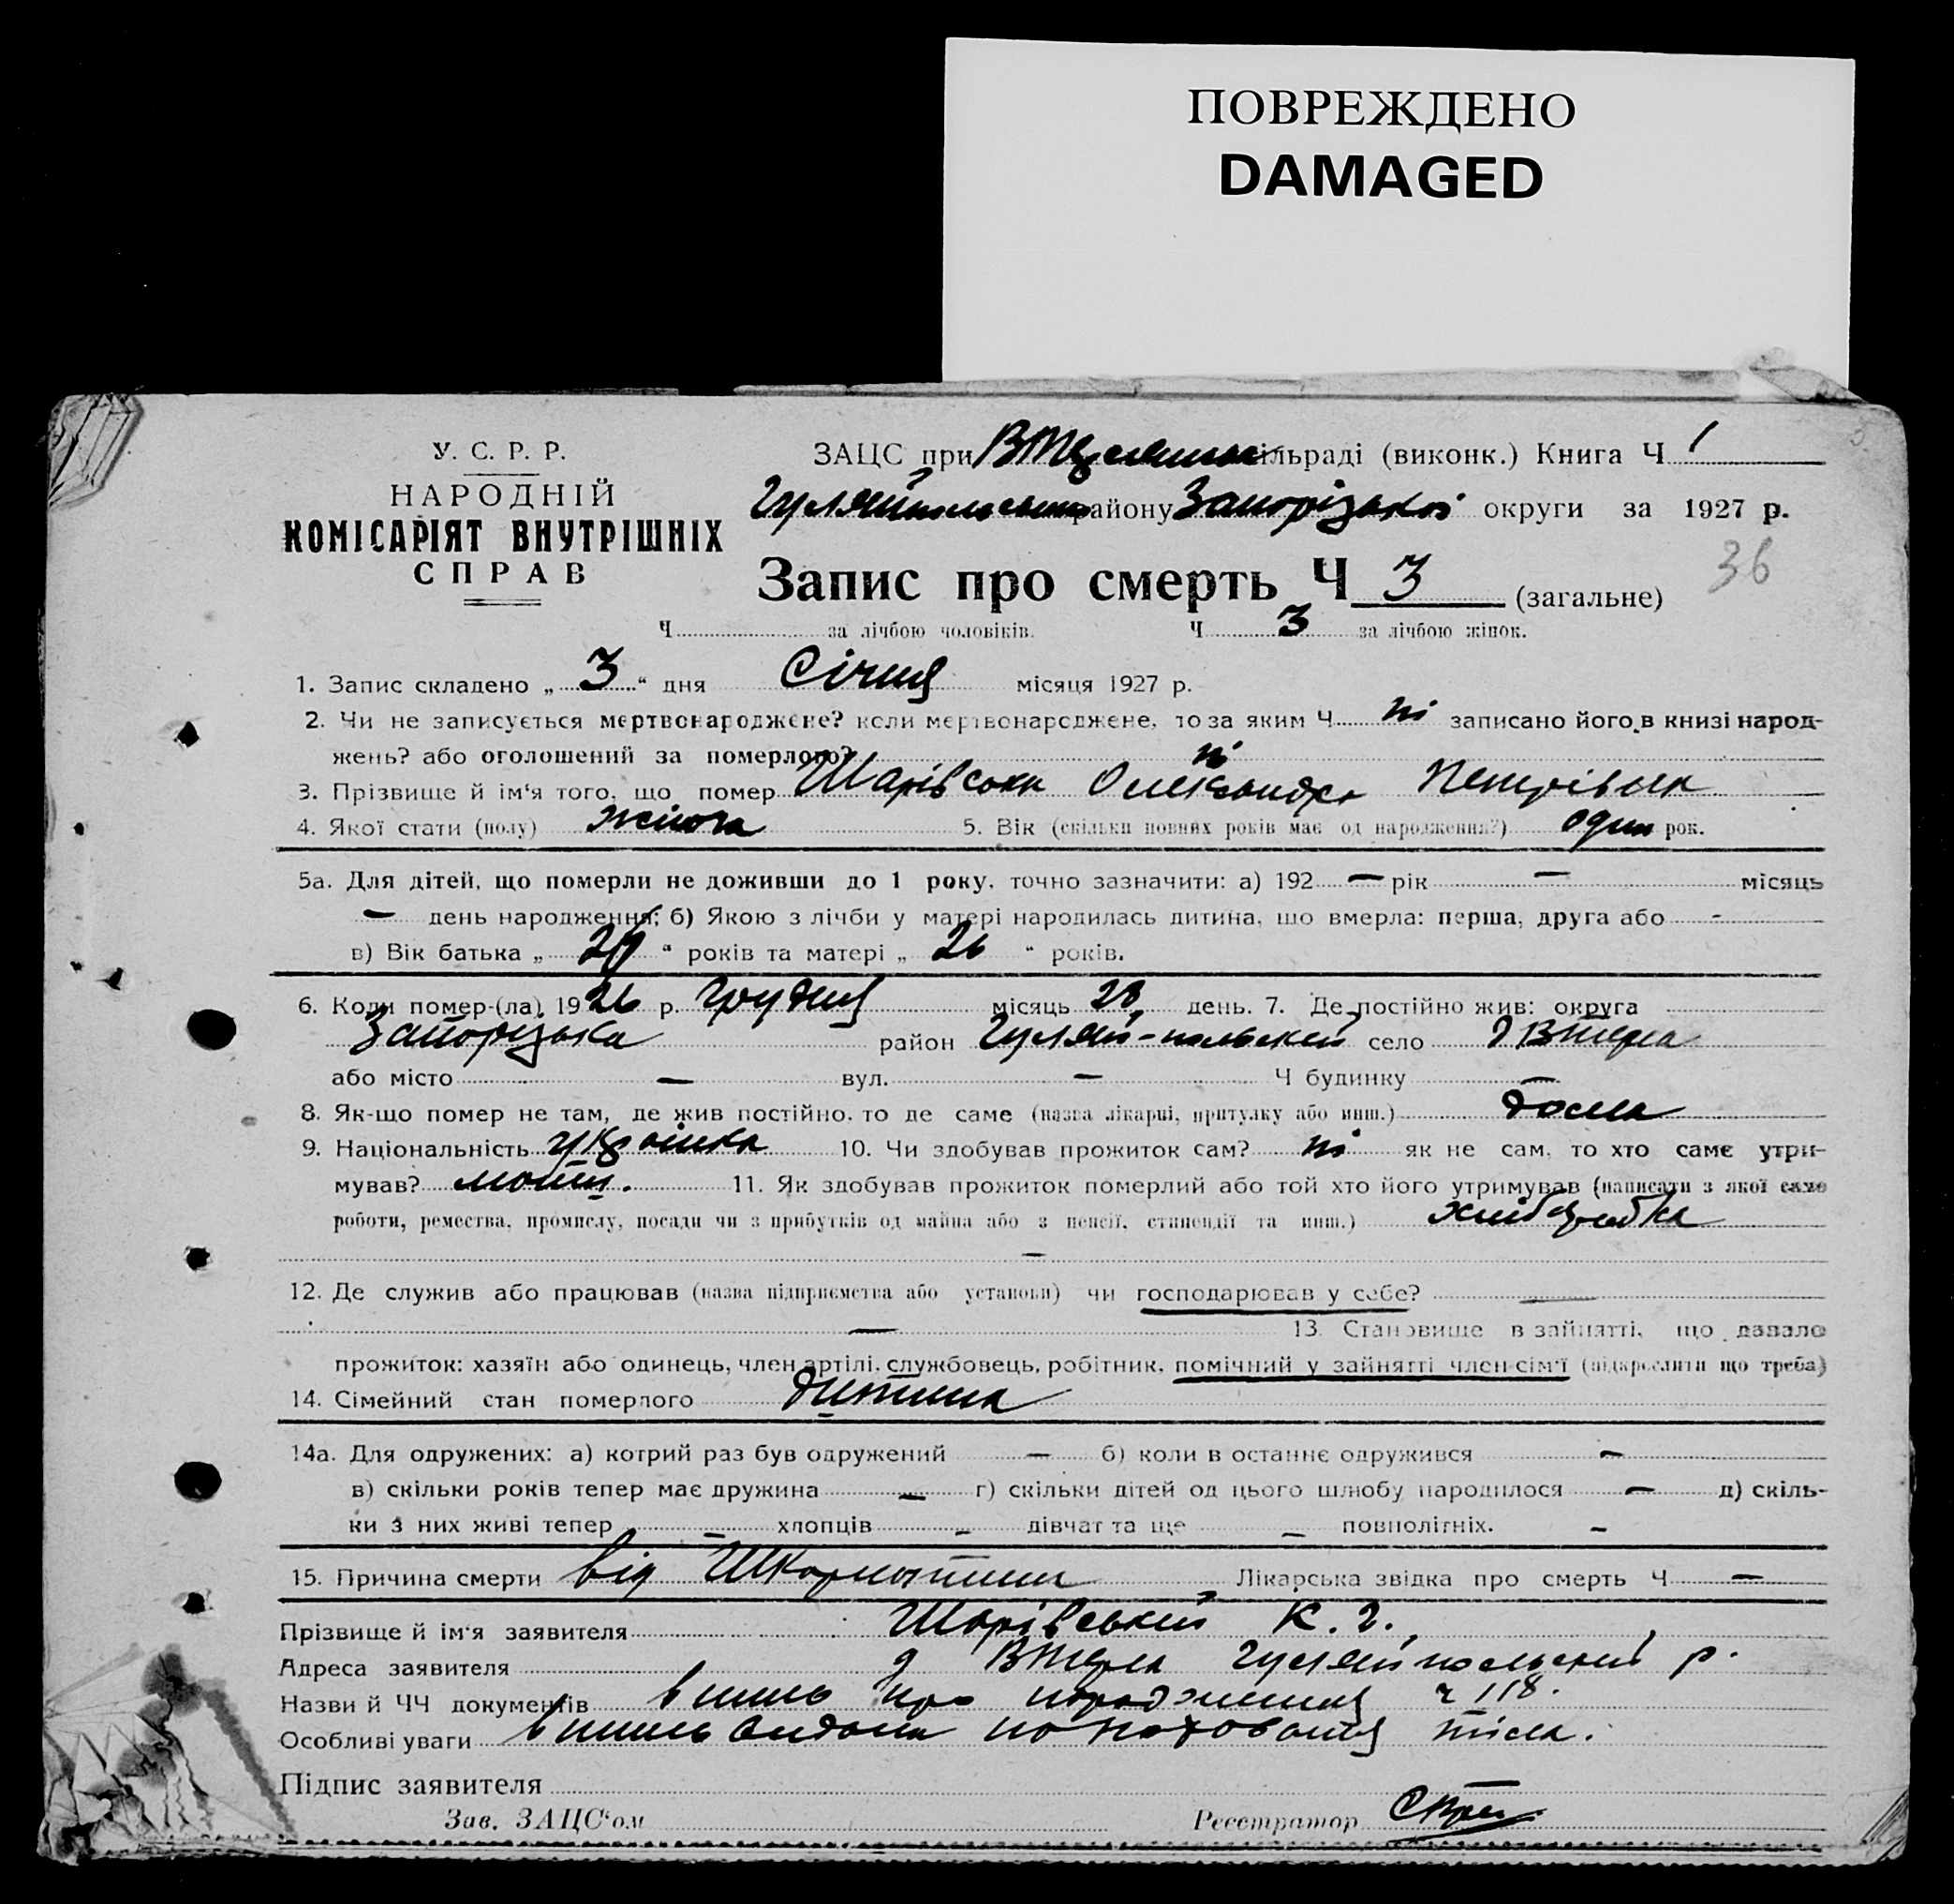 ПОВРЕЖДЕНО
DAMAGED
У. С. Р. Р.
НАРОДНІЙ
КОМІСАРІЯТ ВНУТРІШНІХ
СПРАВ
ЗАЦС при сільраді (виконк.) Книга Ч 1
району Запорізької округи за 1927 р.
36
Запис про смерть Ч 3 (загальне)
Ч за лічбою чоловіків. Ч 3 за лічбою жінок.
1. Запис складено „ 3 “ дня Січня місяця 1927 р.
2. Чи не записується мертвонароджене? коли мертвонароджене, то за яким Ч ні записано його в книзі народ-
жень? або оголошений за померлого? ні
3. Прізвище й ім‘я того, що помер Шарівська Олександра Петрівна
4. Якої стати (полу) жіноча 5. Вік (скільки повних років має од народження?) один рок.
5а. Для дітей, що померли не доживши до 1 року, точно зазначити: а) 192 — рік — місяць
— день народження; б) Якою з лічби у матері народилась дитина, що вмерла: перша, друга або -
в) Вік батька „ “ років та матері „ 26 “ років.
6. Коли помер-(ла) 1926 р. Грудня місяць 28 день. 7. Де постійно жив: округа
Запорізька район Гуляй-польский село
або місто — вул. — Ч будинку —
8. Як-що помер не там, де жив постійно, то де саме (назва лікарні, притулку або инш.) дома
9. Національність 10. Чи здобував прожиток сам? ні як не сам, то хто саме утри-
мував? 11. Як здобував прожиток померлий або той хто його утримував (написати з якої саме
роботи, ремества, промислу, посади чи з прибутків од майна або з пенсії, стипендії та инш.)
—
12. Де служив або працював (назва підприємства або установи) чи господарював у себе? —
— 13. Становище в зайнятті, що давало
прожиток: хазяїн або одинець, член артілі, службовець, робітник, помічний у зайнятті член сім‘ї (підкреслити що треба)
14. Сімейний стан померлого дитина
14а. Для одружених: а) котрий раз був одружений — б) коли в останнє одружився —
в) скільки років тепер має дружина — г) скільки дітей од цього шлюбу народилося — д) скіль-
ки з них живі тепер — хлопців - дівчат та ще — повнолітніх. -
15. Причина смерти від Шкарлатини Лікарська звідка про смерть Ч —
Прізвище й ім‘я заявителя Шарівський К. Г.
Адреса заявителя Гуляйпольский р.
Назви й ЧЧ документів про ч 118.
Особливі уваги тіла.
Підпис заявителя
Зав. ЗАЦС‘ом Реєстратор